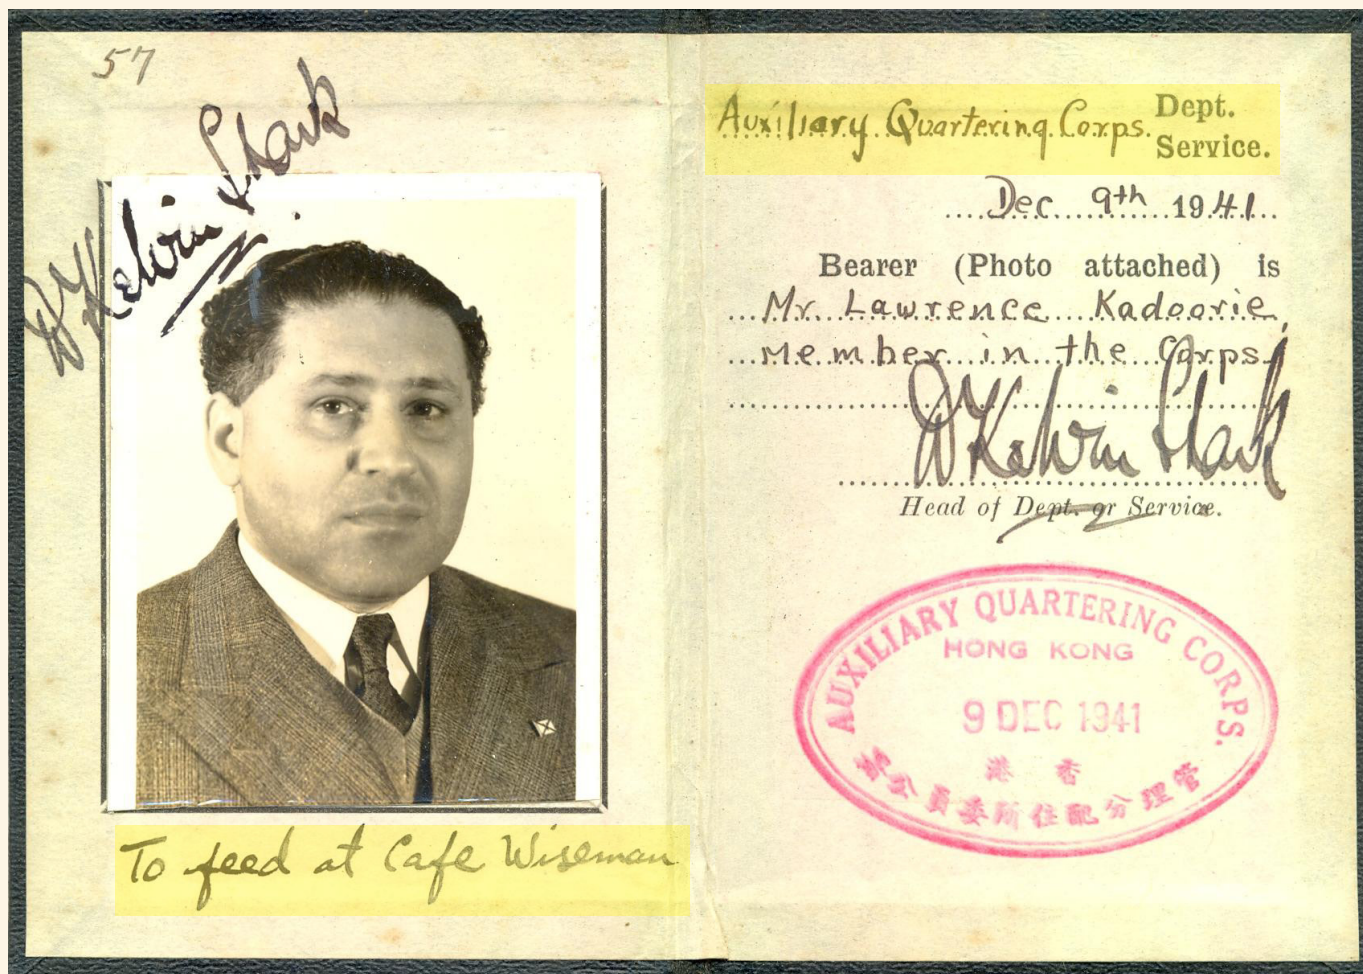 57
Kelvin Stark
To feed at Cafe Wiseman
Auxiliary Quartering Corps. Dept.
Service.
Dec 9th 1941
Bearer (Photo attached) is
Mr. Lawrence Kadoorie,
Member in the Corps.
Kelvin Stark
Head of Dept. or Service.
AUXILIARY QUARTERING CORPS.
HONG KONG
9 DEC 1941
香港
管理分配住所委員公署